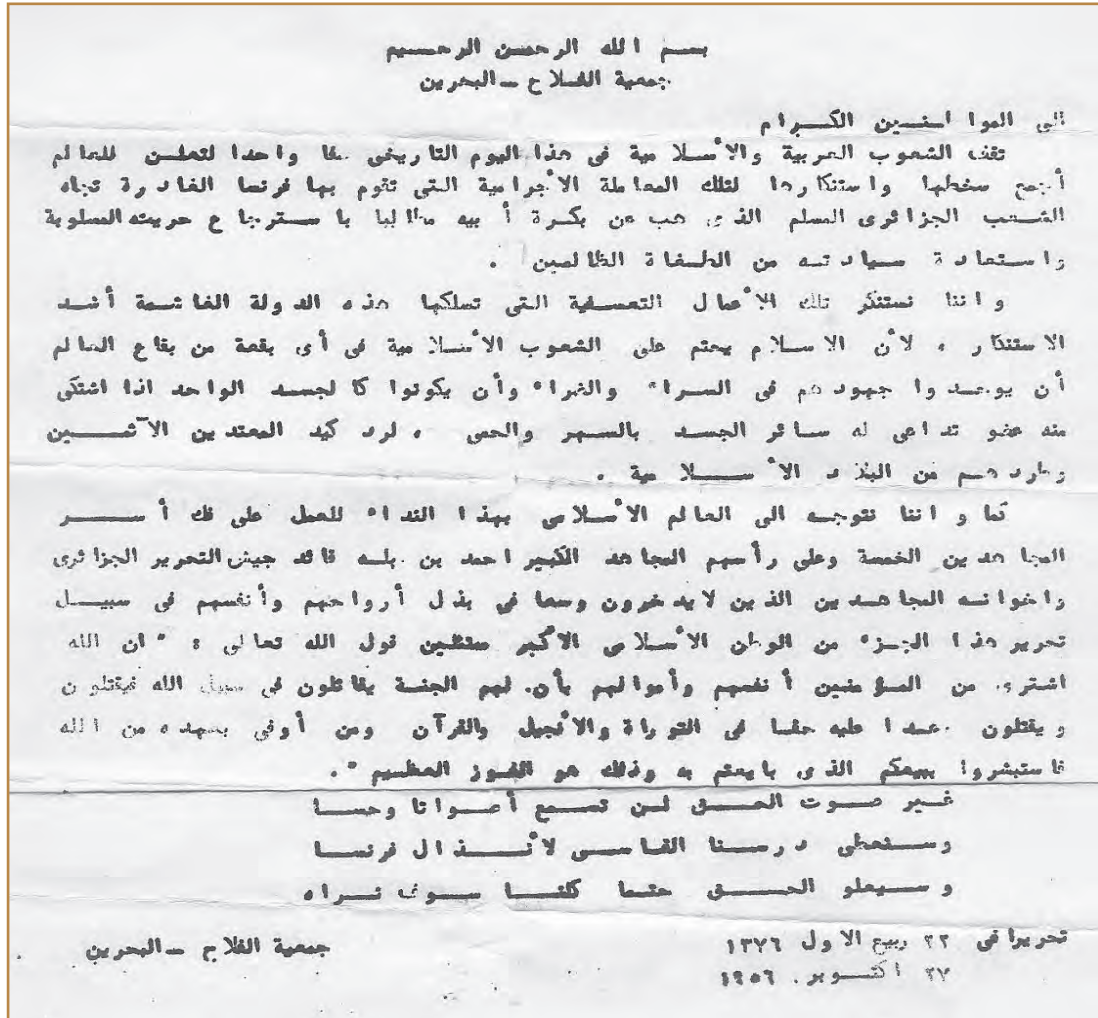 بسم الله الرحمن الرحيم
جمعية الفلاح - البحرين
الى المواطنين الكرام
تقف الشعوب العربية والأسلامية فى هذا اليوم التاريخى صفا واحدا لتعلن للعالم
أجمع سخطها واستنكارها لتلك المعاملة الأجرامية التى تقوم بها فرنسا الغادرة تجاه
الشعب الجزائرى المسلم الذى هب عن بكرة أبيه مطالبا باسترجاع حريته المسلوبة
واستعادة سيادته من الطغاة الظالمين .
واننا نستنكر تلك الأعمال التعسفية التى تسلكها هذه الدولة الغاشمة أشد
الاستنكار ، لأن الاسلام يحتم على الشعوب الأسلامية فى أى بقعة من بقاع العالم
أن يوحدوا جهودهم فى السراء والضراء وأن يكونوا كالجسد الواحد اذا اشتكى
منه عضو تداعى له سائر الجسد بالسهر والحمى ، لرد كيد المعتدين الآثمين
وطردهم من البلاد الأسلامية .
كما واننا نتوجه الى العالم الأسلامى بهذا النداء للعمل على فك أسر
المجاهدين الخمسة وعلى رأسهم المجاهد الكبير احمد بن بله قائد جيش التحرير الجزائرى
واخوانه المجاهدين الذين لايدخرون وسعا في بذل أرواحهم وأنفسهم فى سبيل
تحرير هذا الجزء من الوطن الأسلامى الأكبر ممتثلين قول الله تعالى : " ان الله
اشترى من المؤمنين أنفسهم وأموالهم بأن لهم الجنة يقاتلون فى سبيل الله فيقتلون
ويقتلون وعدا عليه حقا فى التوراة والأنجيل والقرآن ومن أوفى بعهده من الله
فاستبشروا ببيعكم الذى بايعتم به وذلك هو الفوز العظيم ".
غير صوت الحق لن تسمع أصواتا وحسا
وسنعطى درسنا القاسى لأنذال فرنسا
وسيعلو الحق حتما كلنا سوف نراه
تحريرا فى ٢٢ ربيع الاول ١٣٧٦
جمعية الفلاح - البحرين
٢٧ اكتوبر. ١٩٥٦